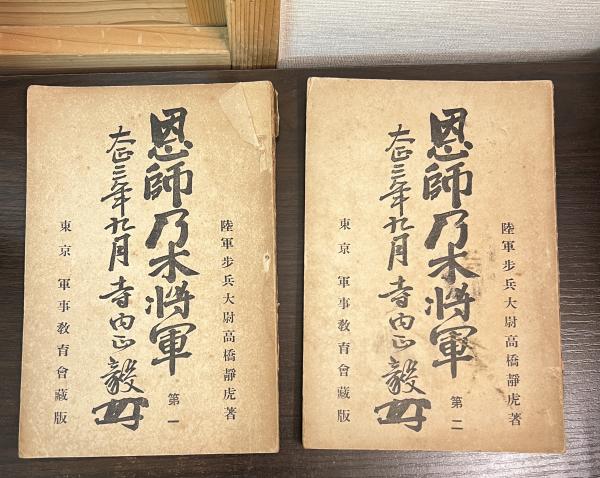 陸軍步兵大尉高橋靜虎著
恩師乃木将軍 第一
大正三年九月 寺内正毅
東京 軍事教育會藏版
陸軍步兵大尉高橋靜虎著
恩師乃木将軍 第二
大正三年九月 寺内正毅
東京 軍事教育會藏版